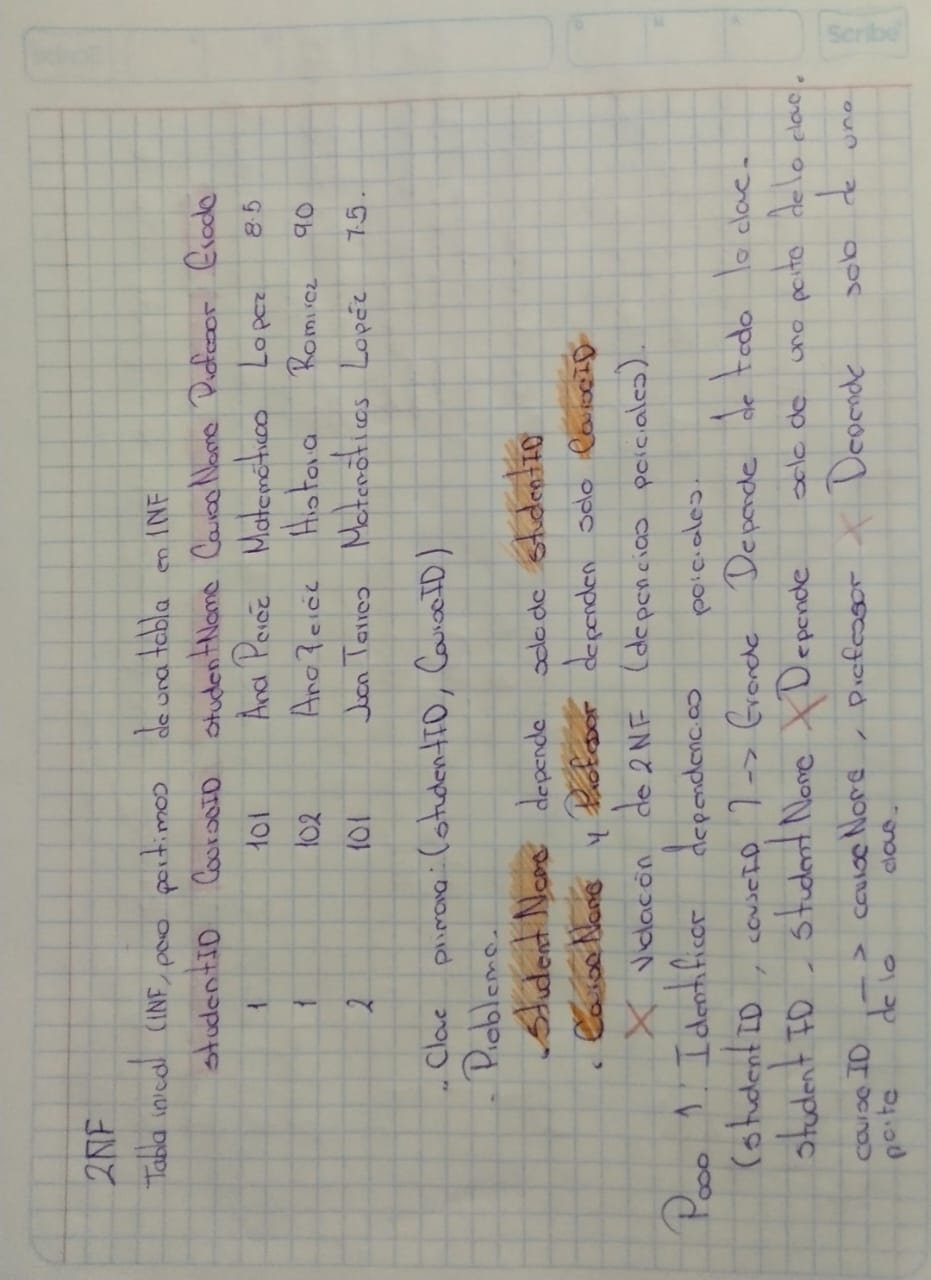 Scribe
2NF
Tabla inicial (1NF, pero partimos de una tabla en 1NF
studentID CourseID studentName CourseName Profesor Grade
1 101 Ana Peréz Matemáticas Lopez 8.5
1 102 Ana Peréz Historia Ramirez 90
2 101 Juan Torres Matemáticas Lopéz 7.5.
- Clave primaria: (studentID, CourseID)
- Problema.
. Student Name depende solo de studentID
. Course Name y Profesor dependen solo CourseID
X Violación de 2NF (depencias parciales).
Paso 1: Identificar dependencias parciales.
(studentID, courseID) -> Grande Depende de todo la clave.
student ID, student Name X Depende solo de una parte de la clave.
course ID -> course Name, profesor X Depende solo de una
parte de la clave.